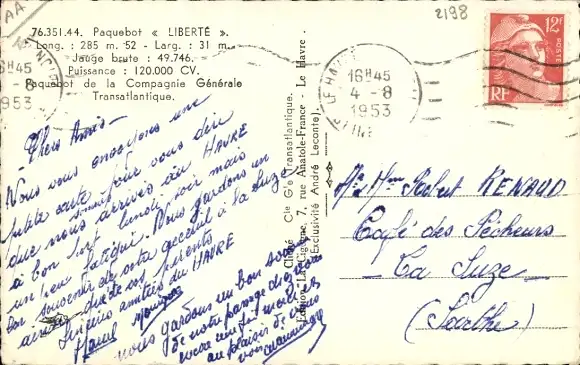 AA.
2198
76.351.44. Paquebot « LIBERTÉ ».
Long. : 285 m. 52 - Larg. : 31 m.
Jauge brute : 49.746.
Puissance : 120.000 CV.
Paquebot de la Compagnie Générale
Transatlantique.
16H45
4 - 8
1953
LE HAVRE
16H45
4 - 8
1953
12F
POSTES
RF
Chers Amis -
Nous vous envoyons une
petite carte pour vous dire
que nous sommes arrivés au HAVRE
à bon port lundi soir mais
un peu fatigué. Nous gardons un
bon souvenir de votre accueil à la Suze
ainsi que de vos parents
Sincères amitiés du HAVRE
Marcel Monique
nous gardons un bon souvenir
de notre passage
encore une fois merci
au plaisir de vous
voir
Cliché Cie Gle Transatlantique.
Edition La 7, rue Anatole-France - Le Havre.
(Exclusivité André Leconte).
Mr Mme Robert RENAUD
Café des Pêcheurs
La Suze
(Sarthe)